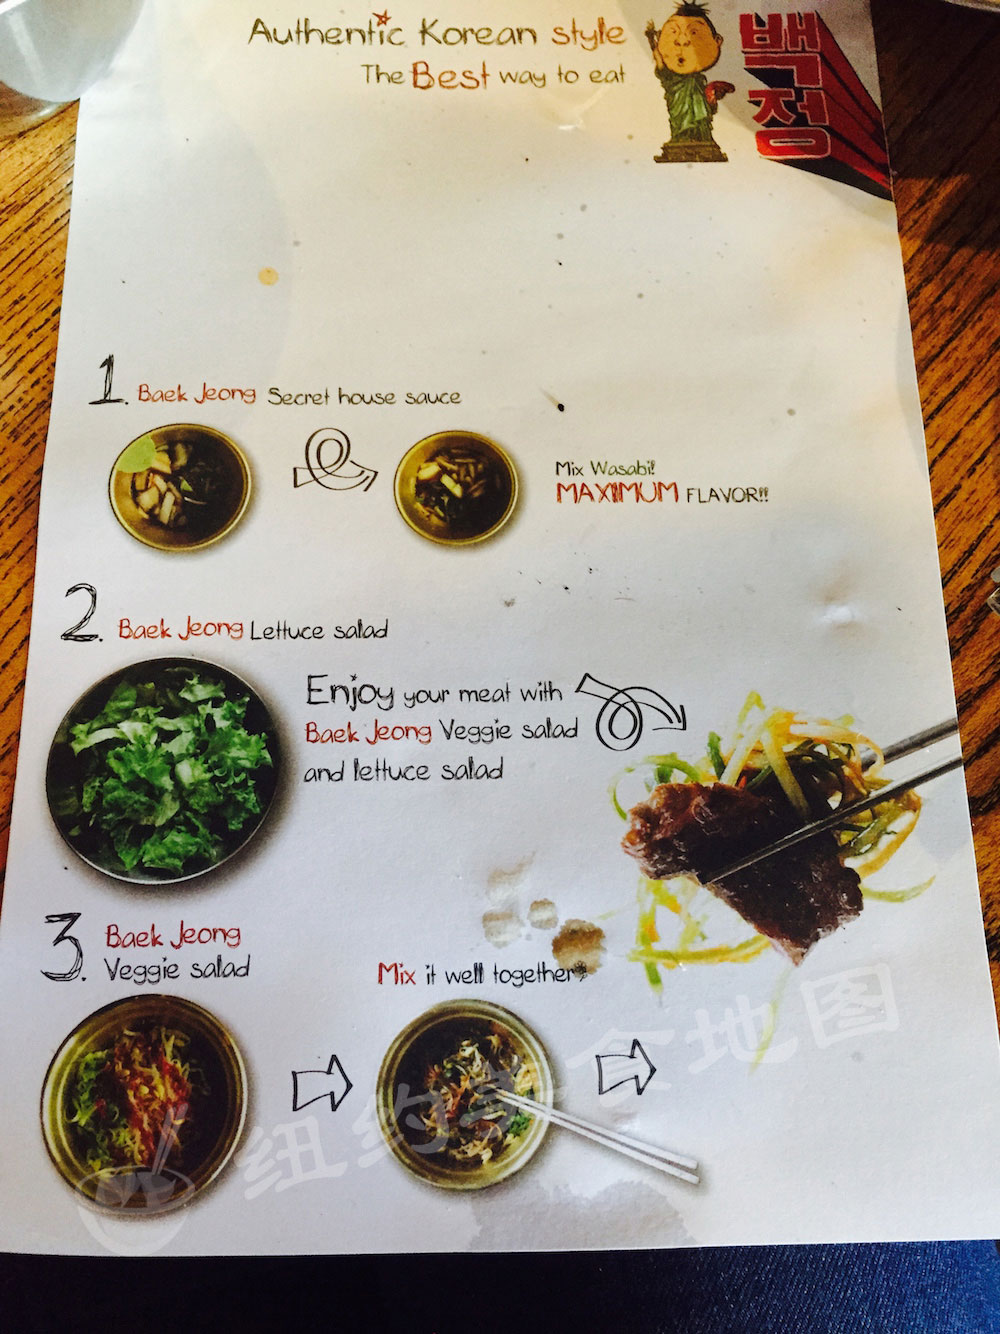 Authentic Korean style
The Best way to eat
백
정
1. Baek Jeong Secret house sauce
Mix Wasabi!
MAXIMUM FLAVOR!!
2. Baek Jeong Lettuce salad
Enjoy your meat with
Baek Jeong Veggie salad
and lettuce salad
3. Baek Jeong
Veggie salad
Mix it well together
纽约美食地图